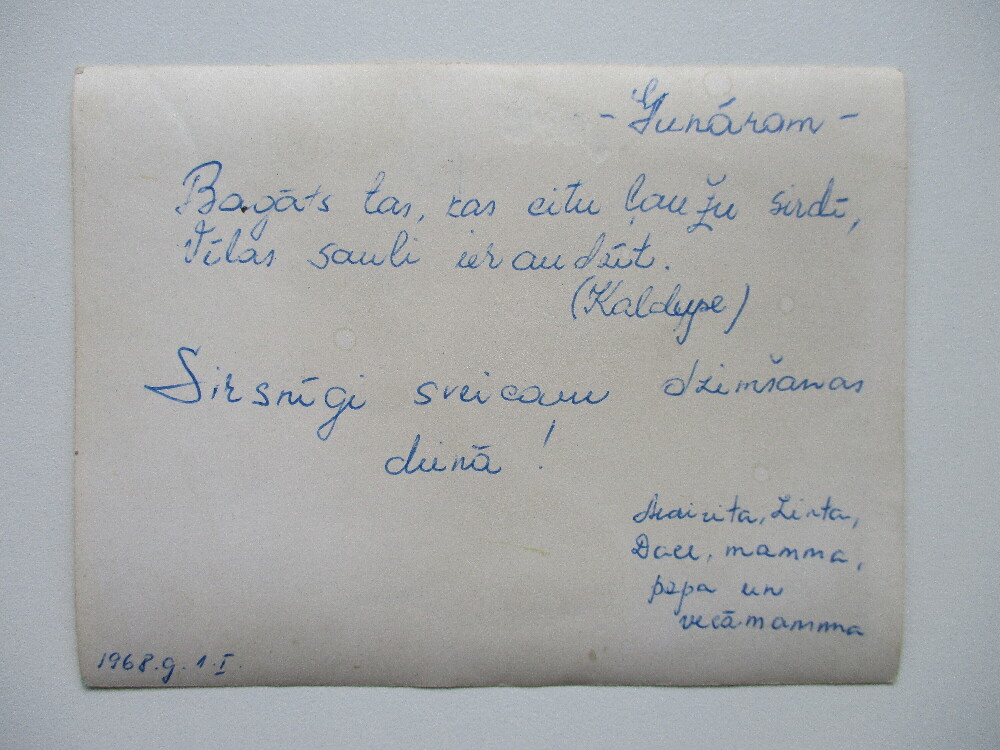 - Gunāram -
Bagāts tas, kas citu ļaužu sirdī,
Vēlas sauli ieraudzīt.
(Kaldupe)
Sirsnīgi sveicam dzimšanas
dienā !
Mairita, Zinta,
Dace, mamma,
papa un
vecā-mamma
1968.g. 1.I.